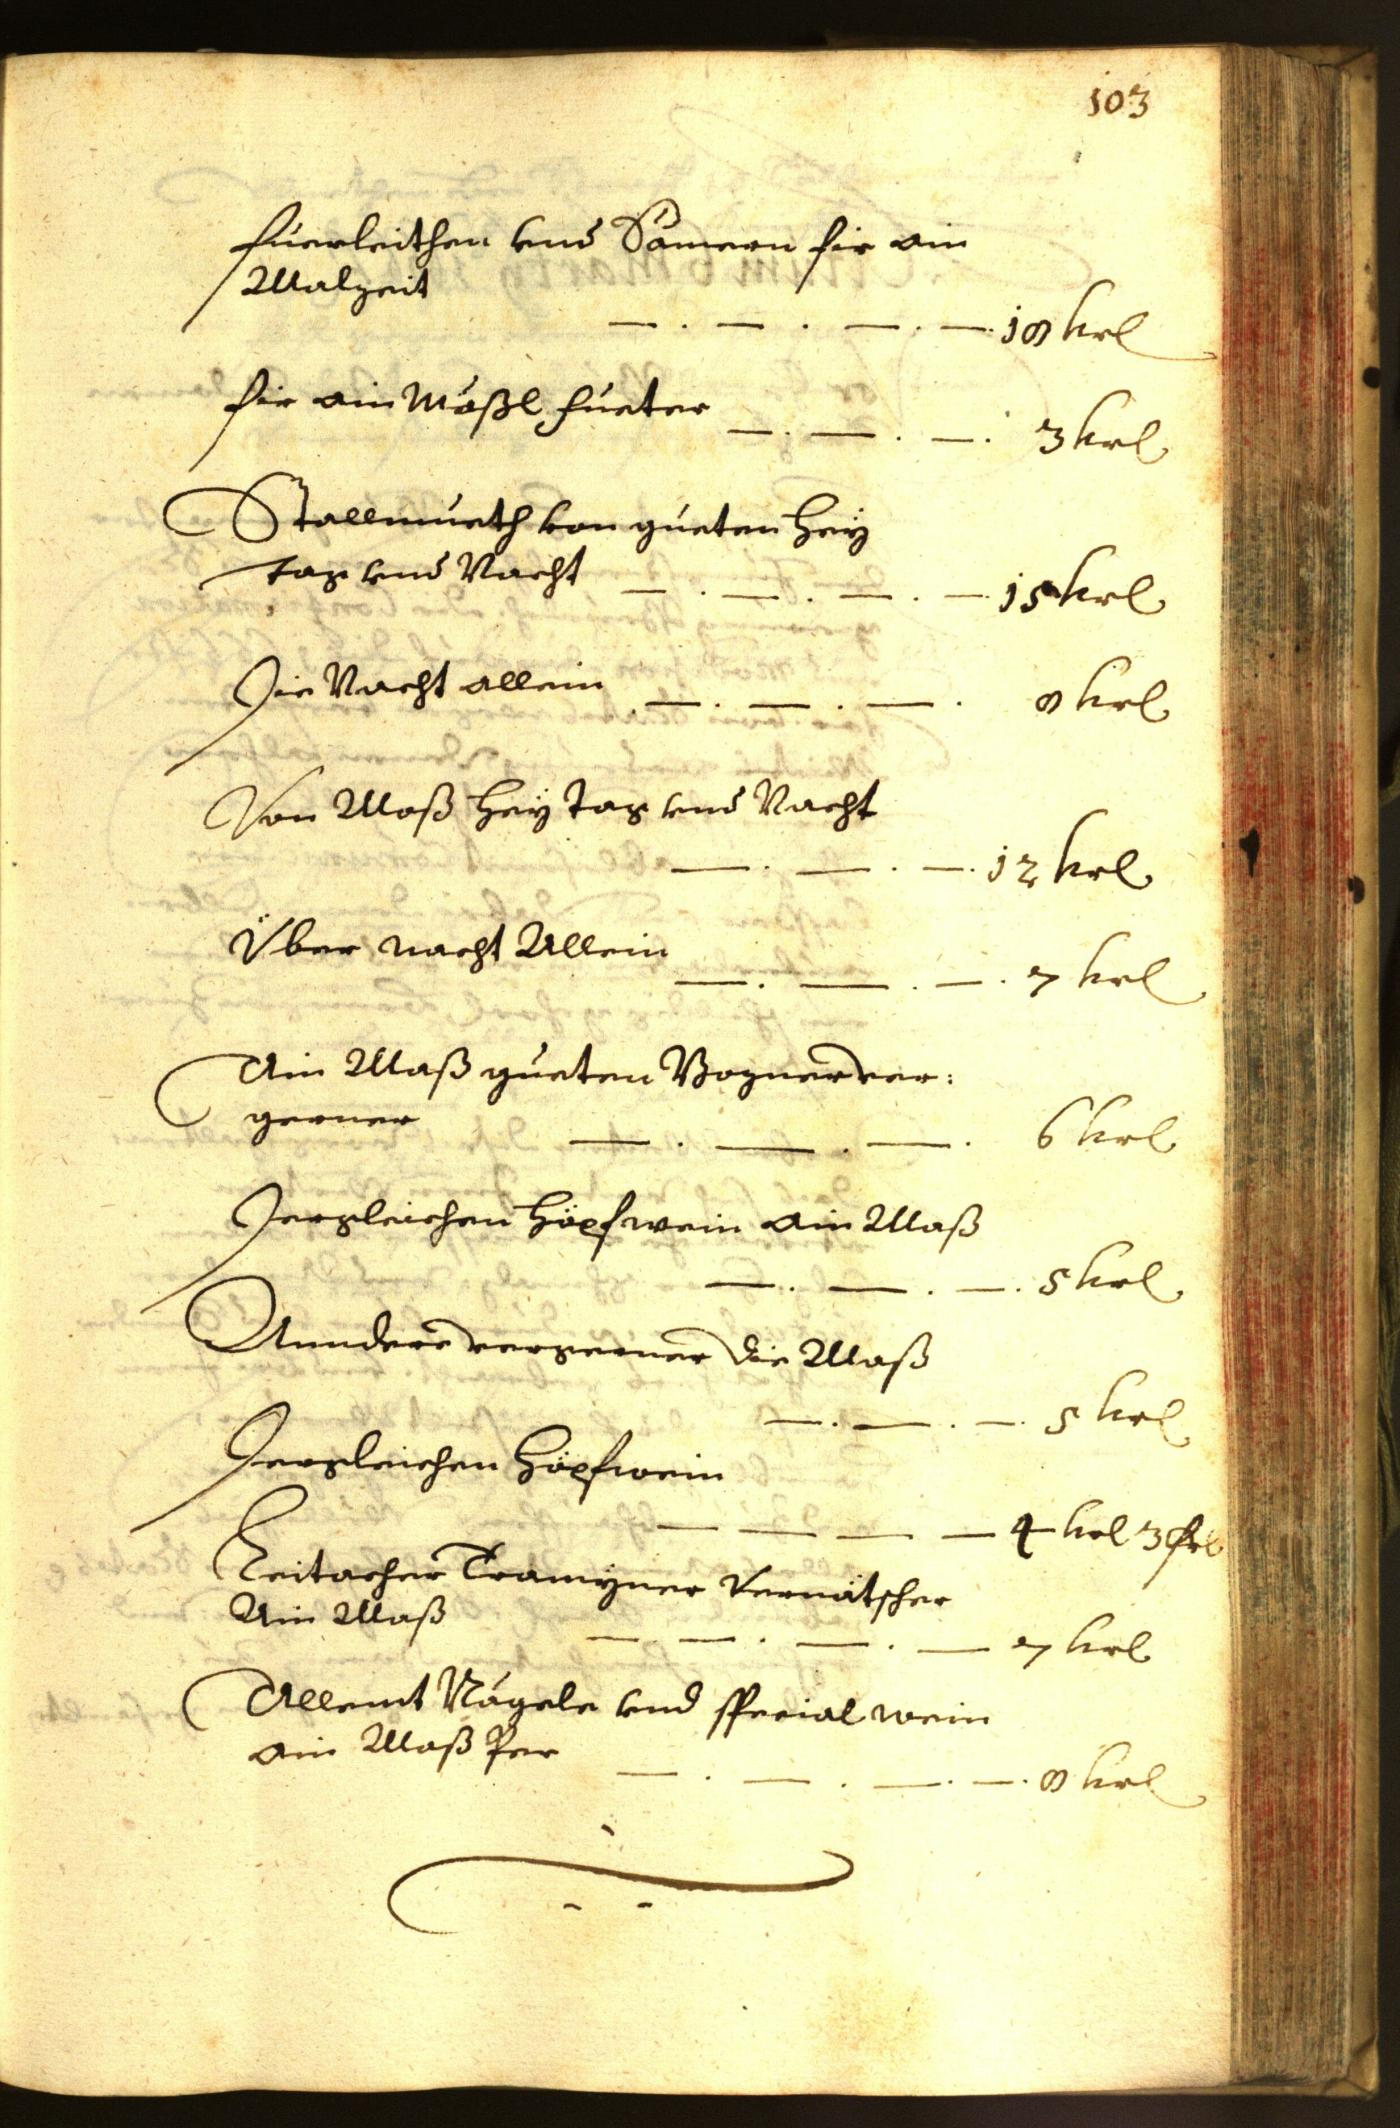 103
fuerleithen vnd Sämern fir ain
Malzeit
— . — . — . — . 18 krl
fir ain Mäßl fueter — . — . — . 3 krl
Stallmueth von gueten Hey
tag vnd Nacht — . — . — . — 15 krl
Die Nacht allein — . — . — . 8 krl
Von Moß Hey tag vnd Nacht
— . — . — . 12 krl
Über nacht Allein
— . — . — . 7 krl
Ain Maß gueten Bozner
gerner — . — . — . 6 krl
Dergleichen Höpfwein ain Maß
— . — . — . 5 krl
Anndere die Maß
— . — . — . 5 krl
Dergleichen Höpfwein
— . — . — . — 4 krl 3 frl
Leitacher Tramyner Vernätscher
Ain Maß — . — . — . — 7 krl
Allemt Nägele vnd special wein
ain Maß Per — . — . — . — . 8 krl